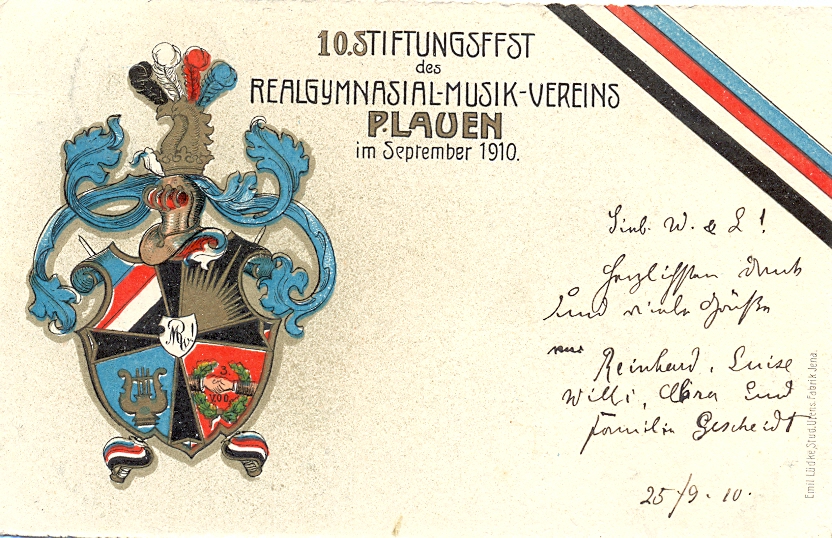 10. STIFTUNGSFEST
des
REALGYMNASIAL-MUSIK-VEREINS
PLAUEN
im September 1910.
Lieb. W. & L!
Herzlichsten Dank
und viele Grüße
Reinhard, Luise
Willi, Clara und
Familie Gescheidt
25/9. 10.
3.
Emil Lüdke, Stud. Utens. Fabrik Jena.